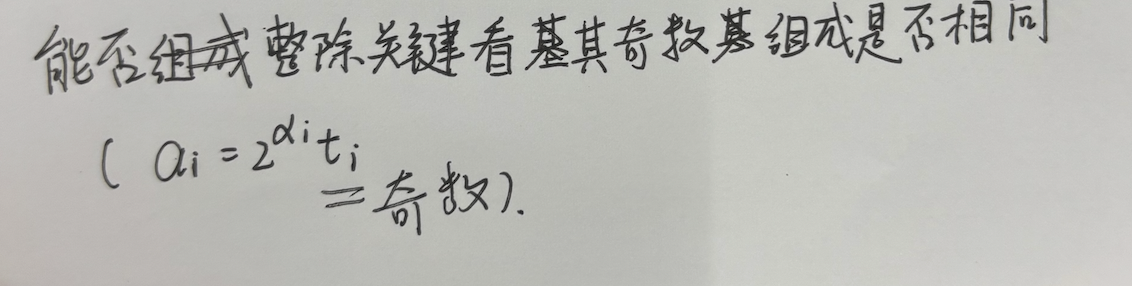 能否整除关键看其奇数基组成是否相同
( aᵢ = 2^αᵢ tᵢ
= 奇数).